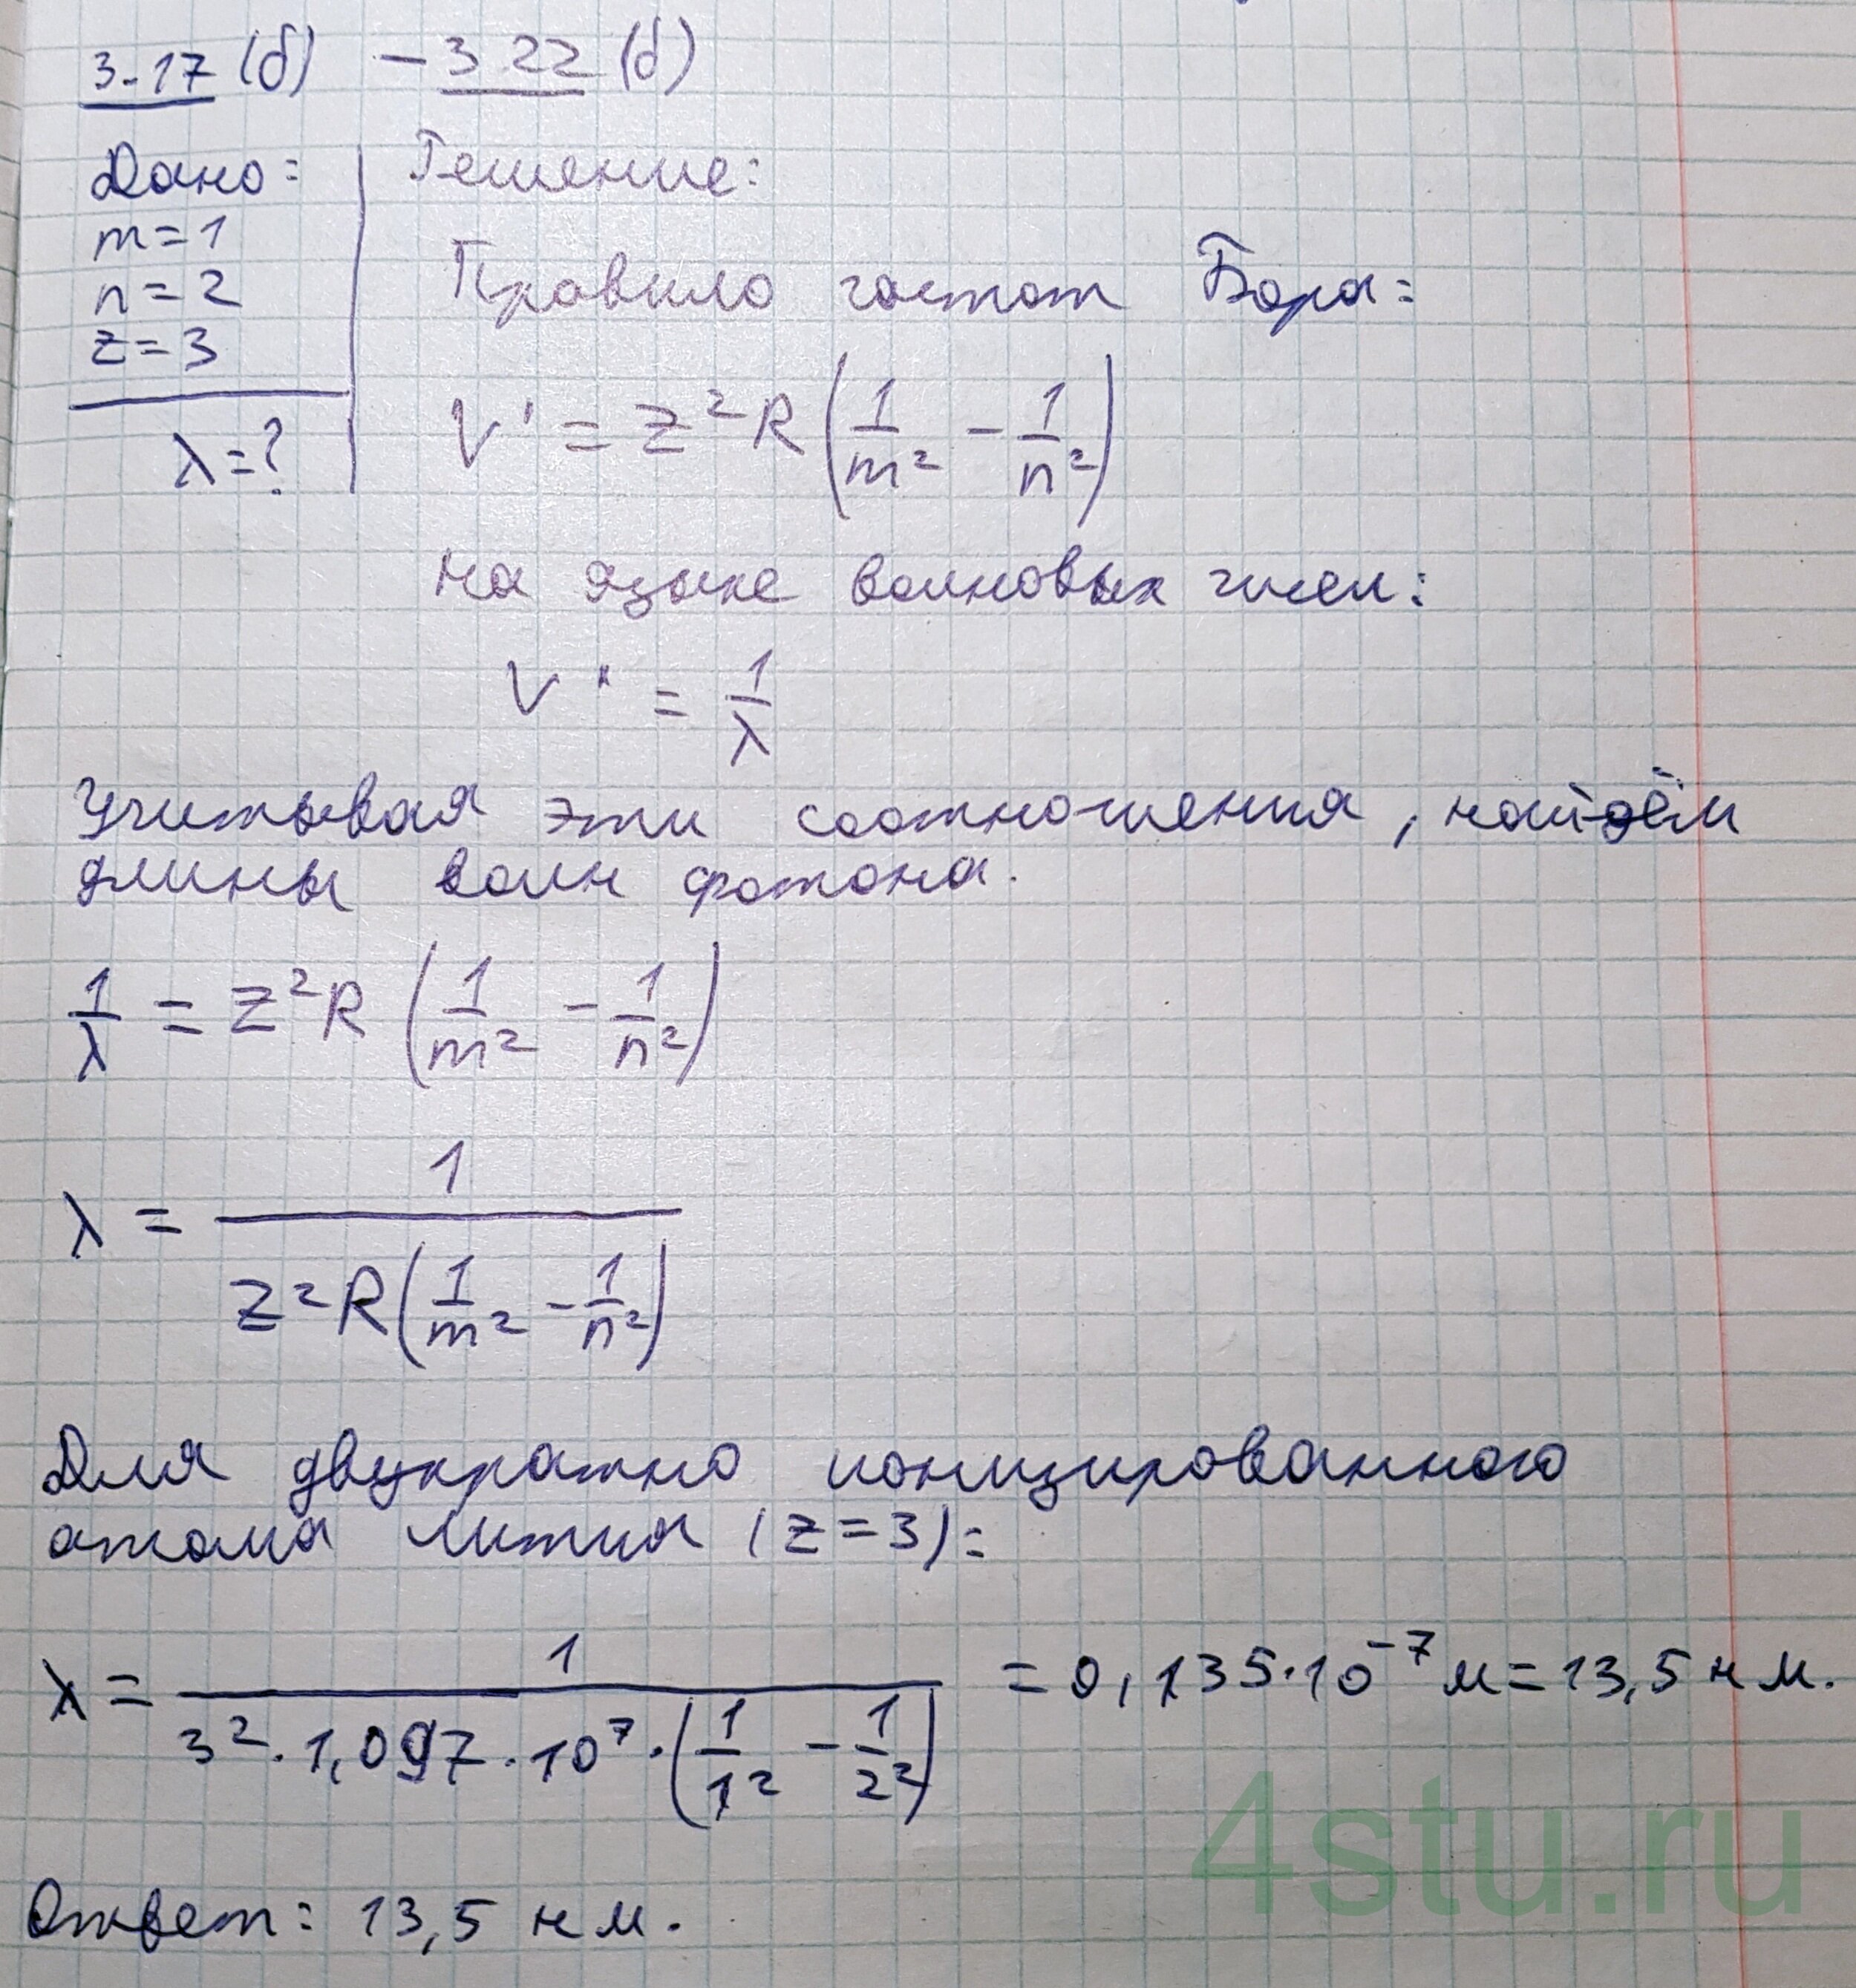 3-17 (б) - 3.22 (б)
Дано:
m=1
n=2
z=3
λ=?
Решение:
Правило частот Бора:
V' = z²R(1/m² - 1/n²)
на языке волновых чисел:
V' = 1/λ
Учитывая эти соотношения, найдём
длины волн фотона.
1/λ = z²R (1/m² - 1/n²)
λ = 1/(z²R(1/m² - 1/n²))
Для двукратно ионизированного
атома лития (z=3):
λ = 1/(3²·1,097·10⁷·(1/1² - 1/2²)) = 0,135·10⁻⁷ м = 13,5 нм.
Ответ: 13,5 нм.
4stu.ru